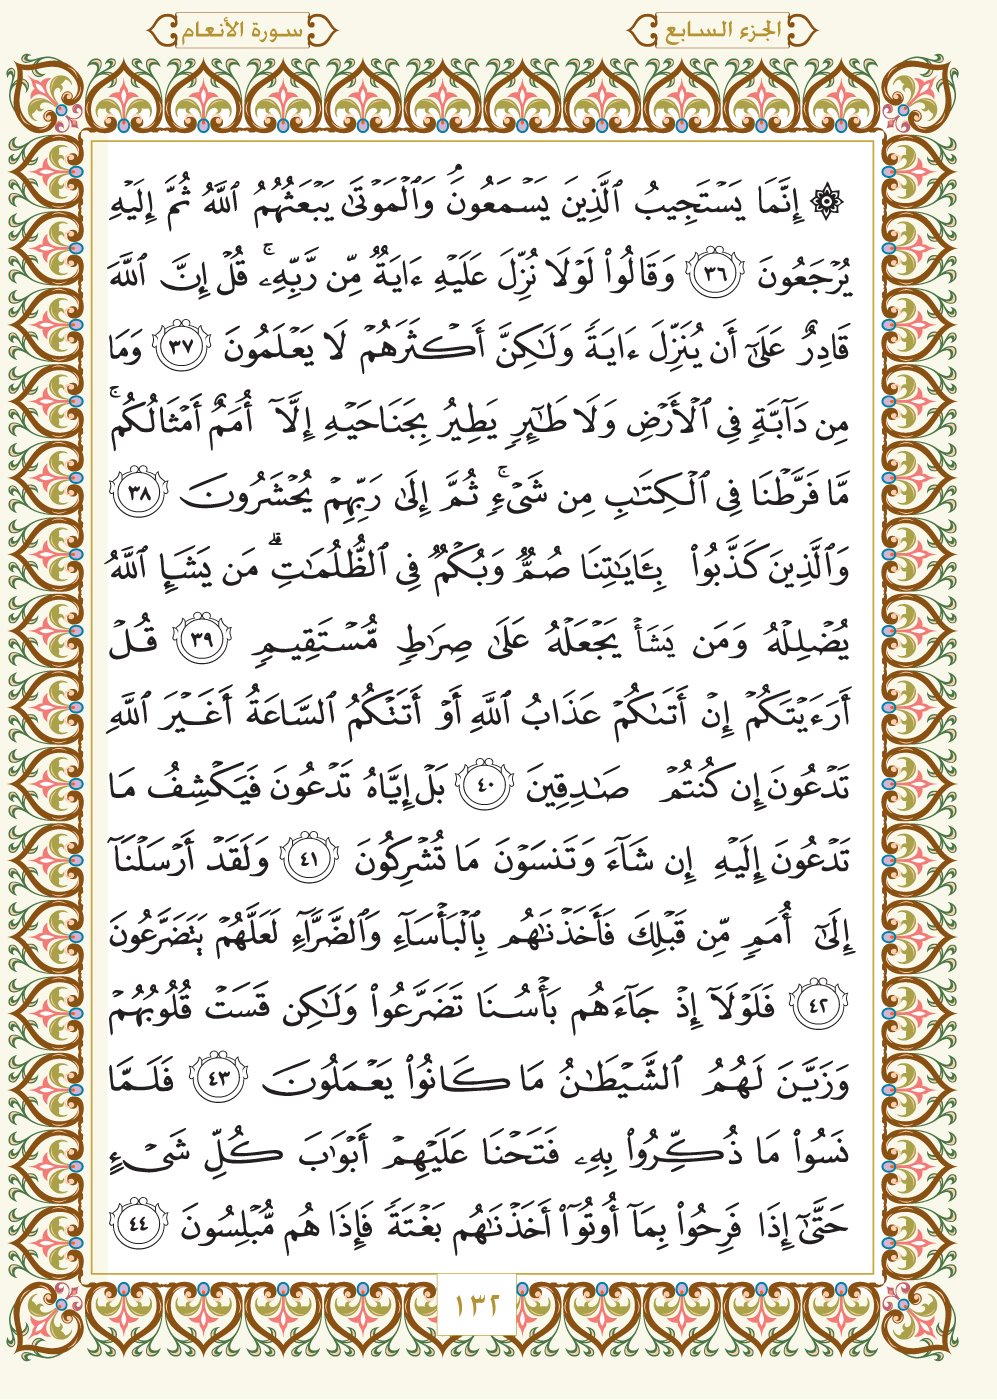 الجزء السابع
سورة الأنعام
۞ إِنَّمَا يَسۡتَجِيبُ ٱلَّذِينَ يَسۡمَعُونَۘ وَٱلۡمَوۡتَىٰ يَبۡعَثُهُمُ ٱللَّهُ ثُمَّ إِلَيۡهِ
يُرۡجَعُونَ ٣٦ وَقَالُواْ لَوۡلَا نُزِّلَ عَلَيۡهِ ءَايَةٞ مِّن رَّبِّهِۦۚ قُلۡ إِنَّ ٱللَّهَ
قَادِرٌ عَلَىٰٓ أَن يُنَزِّلَ ءَايَةٗ وَلَٰكِنَّ أَكۡثَرَهُمۡ لَا يَعۡلَمُونَ ٣٧ وَمَا
مِن دَآبَّةٖ فِي ٱلۡأَرۡضِ وَلَا طَٰٓئِرٖ يَطِيرُ بِجَنَاحَيۡهِ إِلَّآ أُمَمٌ أَمۡثَالُكُمۚ
مَّا فَرَّطۡنَا فِي ٱلۡكِتَٰبِ مِن شَيۡءٖۚ ثُمَّ إِلَىٰ رَبِّهِمۡ يُحۡشَرُونَ ٣٨
وَٱلَّذِينَ كَذَّبُواْ بِـَٔايَٰتِنَا صُمّٞ وَبُكۡمٞ فِي ٱلظُّلُمَٰتِۗ مَن يَشَإِ ٱللَّهُ
يُضۡلِلۡهُ وَمَن يَشَأۡ يَجۡعَلۡهُ عَلَىٰ صِرَٰطٖ مُّسۡتَقِيمٖ ٣٩ قُلۡ
أَرَءَيۡتَكُمۡ إِنۡ أَتَىٰكُمۡ عَذَابُ ٱللَّهِ أَوۡ أَتَتۡكُمُ ٱلسَّاعَةُ أَغَيۡرَ ٱللَّهِ
تَدۡعُونَ إِن كُنتُمۡ صَٰدِقِينَ ٤٠ بَلۡ إِيَّاهُ تَدۡعُونَ فَيَكۡشِفُ مَا
تَدۡعُونَ إِلَيۡهِ إِن شَآءَ وَتَنسَوۡنَ مَا تُشۡرِكُونَ ٤١ وَلَقَدۡ أَرۡسَلۡنَآ
إِلَىٰٓ أُمَمٖ مِّن قَبۡلِكَ فَأَخَذۡنَٰهُم بِٱلۡبَأۡسَآءِ وَٱلضَّرَّآءِ لَعَلَّهُمۡ يَتَضَرَّعُونَ
٤٢ فَلَوۡلَآ إِذۡ جَآءَهُم بَأۡسُنَا تَضَرَّعُواْ وَلَٰكِن قَسَتۡ قُلُوبُهُمۡ
وَزَيَّنَ لَهُمُ ٱلشَّيۡطَٰنُ مَا كَانُواْ يَعۡمَلُونَ ٤٣ فَلَمَّا
نَسُواْ مَا ذُكِّرُواْ بِهِۦ فَتَحۡنَا عَلَيۡهِمۡ أَبۡوَٰبَ كُلِّ شَيۡءٍ
حَتَّىٰٓ إِذَا فَرِحُواْ بِمَآ أُوتُوٓاْ أَخَذۡنَٰهُم بَغۡتَةٗ فَإِذَا هُم مُّبۡلِسُونَ ٤٤
١٣٢